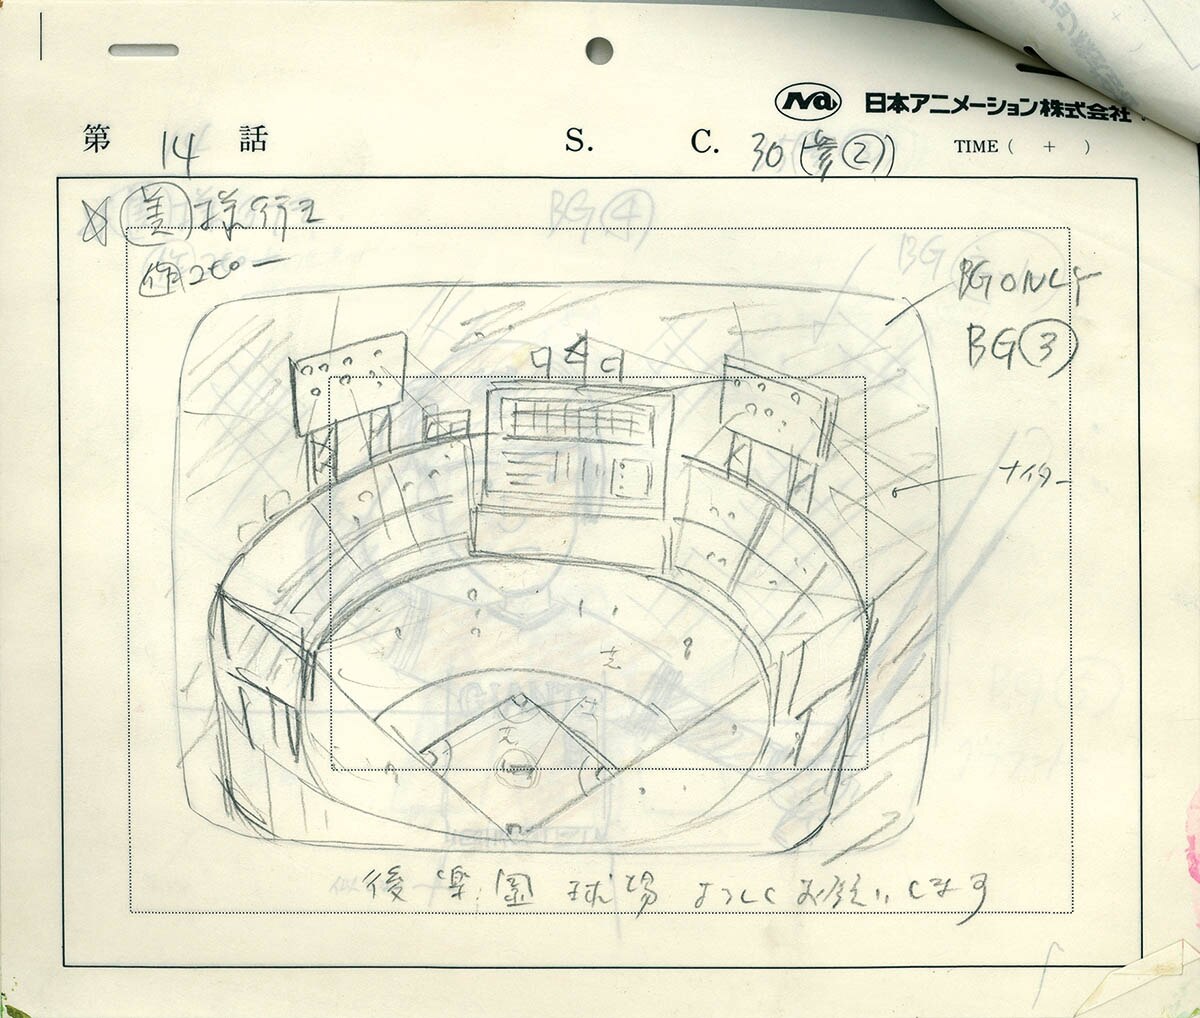 日本アニメーション株式会社
第 14 話 S. C. 30 (参②) TIME ( + )
美 様行て
BG④
作 コピー
BG ONLY
BG③
ナイター
芝
芝
芝
後楽園球場 よろしくお願いします